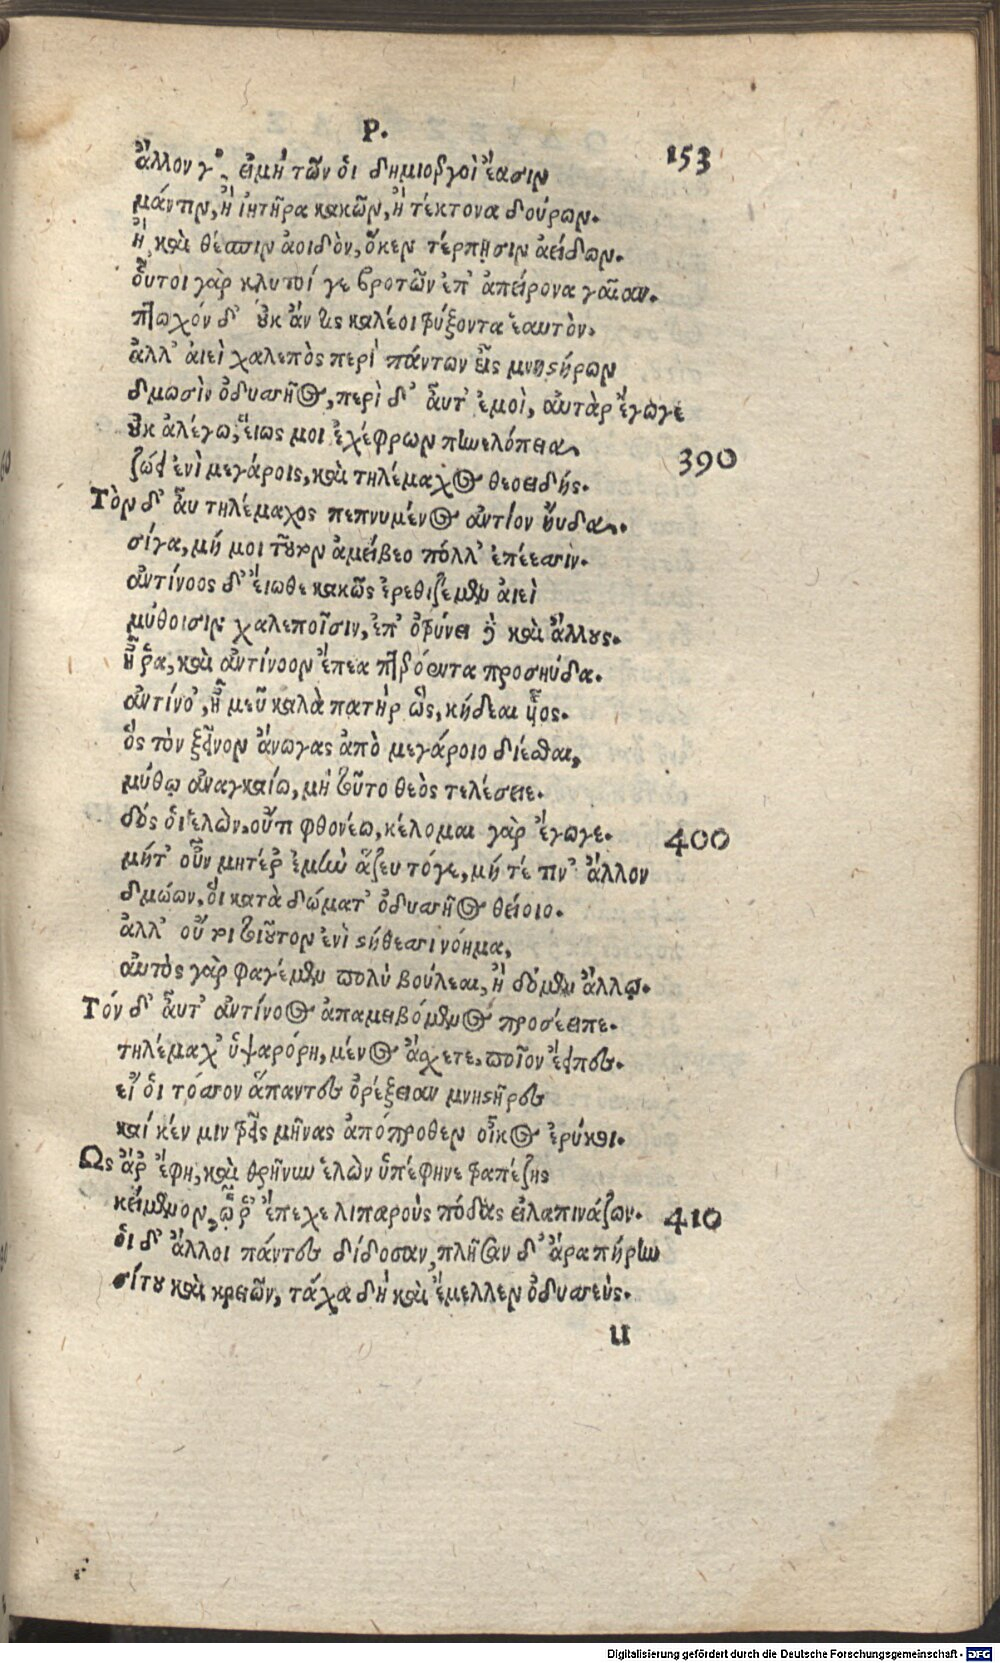 Ρ.
153
ἄλλον γ᾽, εἰμὴ τῶν ὁὶ δημιοεργοὶ ἔασιν
μάντιν, ἢ ἰητῆρα κακῶν, ἢ τέκτονα δούρων.
ἢ καὶ θέσπιν ἀοιδὸν, ὅκεν τέρπησιν ἀείδων.
οὗτοι γὰρ κλυτοί γε βροτῶν ἐπ᾽ ἀπείρονα γαῖαν.
πτωχόν δ᾽ ὐκ ἄν τις καλέοι τρύξοντα ἑαυτὸν.
ἀλλ᾽ αἰεὶ χαλεπὸς περὶ πάντων εἶς μνηστήρων
δμωσὶν ὀδυσσῆος, περὶ δ᾽ αὖτ᾽ ἐμοὶ, αὐτὰρ ἔγωγε
οὐκ ἀλέγω, εἵως μοι ἐχέφρων πηνελόπεια,
390
ζώει ἐνὶ μεγάροις, καὶ τηλέμαχος θεοειδής.
Τὸν δ᾽ αὖ τηλέμαχος πεπνυμένος ἀντίον ηὔδα.
σίγα, μή μοι τοῦτον ἀμείβεο πόλλ᾽ ἐπέεσσιν.
ἀντίνοος δ᾽ εἴωθε κακῶς ἐρεθιζέμεν αἰεὶ
μύθοισιν χαλεποῖσιν, ἐπ᾽ οτρύνει δὲ καὶ ἄλλους.
ἦ ῥα, καὶ ἀντίνοον ἔπεα πτερόεντα προσηύδα.
ἀντίνο᾽, ἦ μεῦ καλὰ πατὴρ ὣς, κήδεαι υἷος.
ὃς τὸν ξεῖνον ἄνωγας ἀπὸ μεγάροιο δίεσθαι,
μύθῳ ἀναγκαίω, μὴ τοῦτο θεὸς τελέσειε.
δός ὁὶ ἑλὼν, οὔτι φθονέω, κέλομαι γὰρ ἔγωγε.
400
μήτ᾽ οὖν μητέρ᾽ ἐμὴν ἅζευ τόγε, μή τέ τιν᾽ ἄλλον
δμώων, ὃι κατὰ δώματ᾽ ὀδυσσῆος θείοιο.
ἀλλ᾽ οὔ τοι τοιοῦτον ἐνὶ στήθεσσι νόημα,
αὐτὸς γὰρ φαγέμεν πολὺ βούλεαι, ἢ δόμεν ἄλλῳ.
Τόν δ᾽ αὖτ᾽ ἀντίνοος ἀπαμειβόμενος προσέειπε.
τηλέμαχ᾽ ὑψαγόρη, μένος ἄσχετε, ποῖον ἔειπες.
εἴ ὁὶ τόσσον ἅπαντες ὀρέξειαν μνηστῆρες
καί κέν μιν τρεῖς μῆνας ἀπόπροθεν οἶκος ἐρύκοι.
Ως ἄρ᾽ ἔφη, καὶ θρῆνυν ἑλὼν ὑπέφηνε τραπέζης
κείμενον, ᾧ ῥ᾽ ἔπεχε λιπαροὺς πόδας εἰλαπινάζων.
410
ὁι δ᾽ ἄλλοι πάντες δίδοσαν, πλῆσαν δ᾽ ἄρα πήρην
σίτου καὶ κρειῶν, τάχα δὴ καὶ ἔμελλεν ὀδυσσεὺς.
u
Digitalisierung gefördert durch die Deutsche Forschungsgemeinschaft - DFG